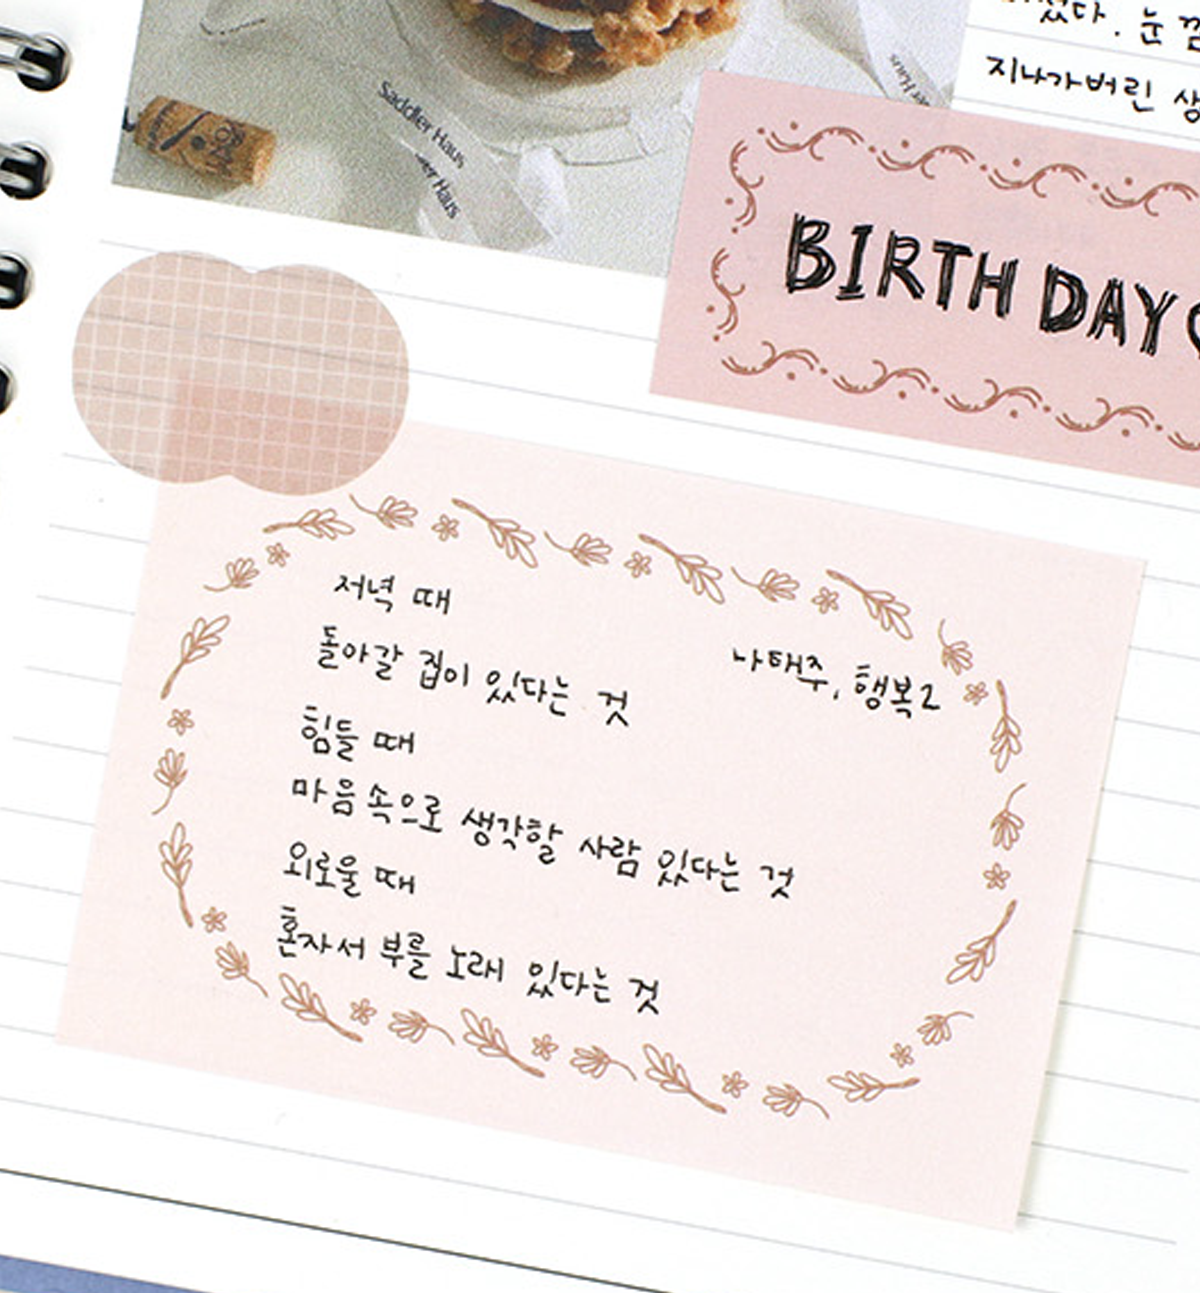 눈
지나가버린
Saddler Haus
Haus
BIRTH DAY
저녁 때
돌아갈 집이 있다는 것
나태주, 행복2
힘들 때
마음 속으로 생각할 사람 있다는 것
외로울 때
혼자서 부를 노래 있다는 것